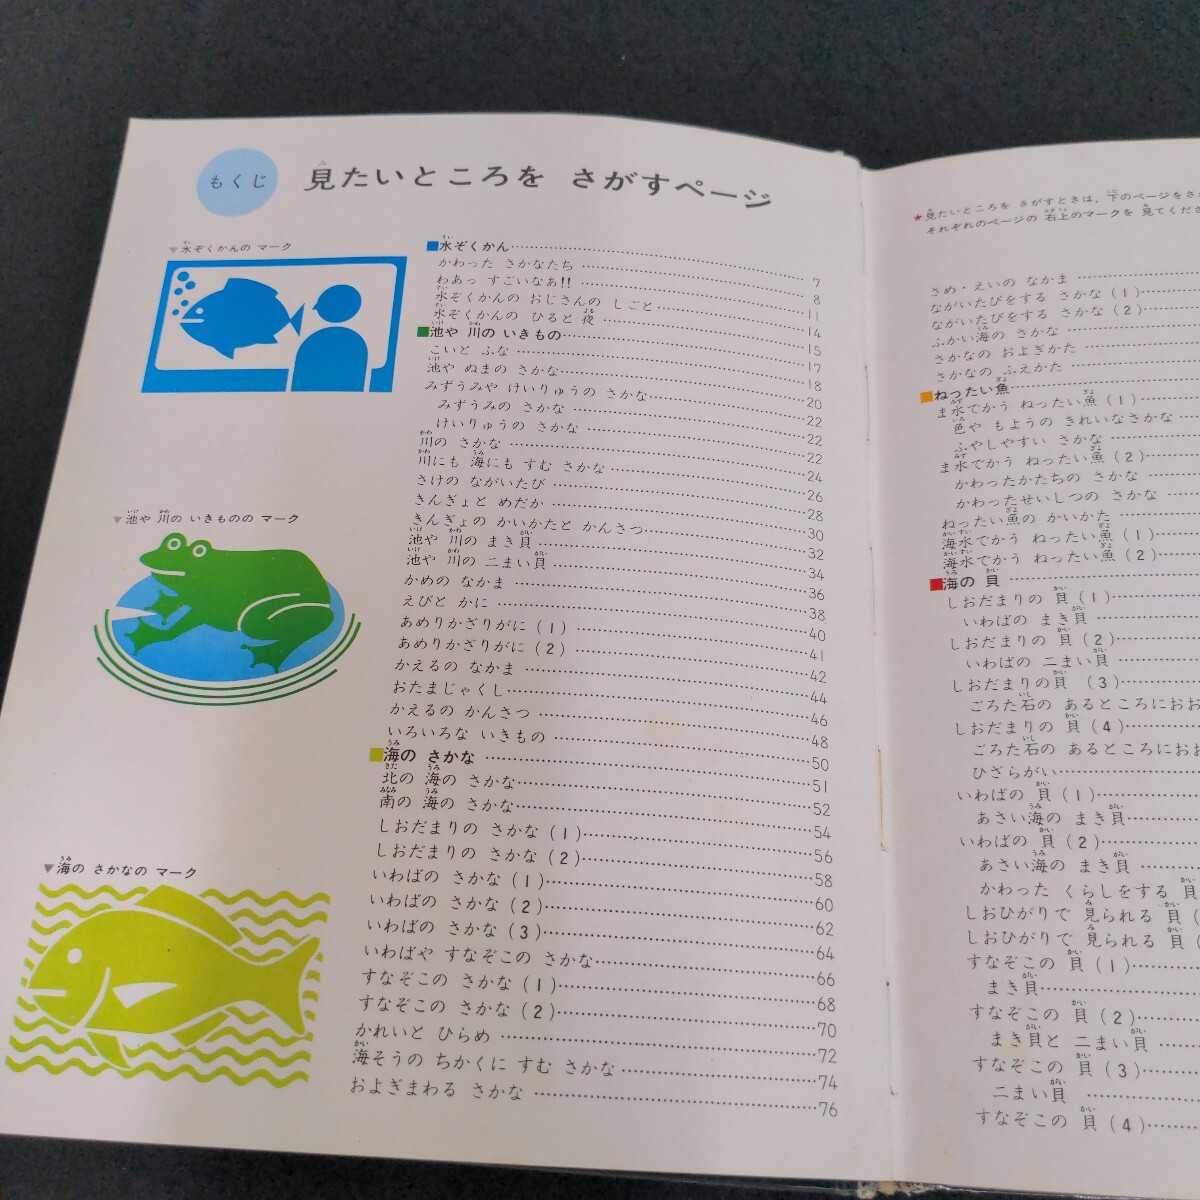 もくじ
見たいところを さがすページ
▼水ぞくかんの マーク
▼池や 川の いきものの マーク
▼海の さかなの マーク
■水ぞくかん……7
かわった さかなたち……8
わあっ すごいなあ!!……11
水ぞくかんの おじさんの しごと……14
水ぞくかんの ひると 夜……15
■池や 川の いきもの……17
こいと ふな……18
池や ぬまの さかな……20
みずうみや けいりゅうの さかな……22
みずうみの さかな……22
けいりゅうの さかな……22
川の さかな……24
川にも 海にも すむ さかな……26
さけの ながいたび……28
きんぎょと めだか……30
きんぎょの かいかたと かんさつ……32
池や 川の まき貝……34
池や 川の 二まい貝……36
かめの なかま……38
えびと かに……40
あめりかざりがに (1)……41
あめりかざりがに (2)……42
かえるの なかま……44
おたまじゃくし……46
かえるの かんさつ……48
いろいろな いきもの……50
■海の さかな……51
北の 海の さかな……52
南の 海の さかな……54
しおだまりの さかな (1)……56
しおだまりの さかな (2)……58
いわばの さかな (1)……60
いわばの さかな (2)……62
いわばの さかな (3)……64
いわばや すなぞこの さかな……66
すなぞこの さかな (1)……68
すなぞこの さかな (2)……70
かれいと ひらめ……72
海そうの ちかくに すむ さかな……74
およぎまわる さかな……76
★見たいところを さがすときは，下のページをさ
それぞれのページの 右上のマークを 見てくださ
さめ・えいの なかま……
ながいたびをする さかな (1)……
ながいたびをする さかな (2)……
ふかい海の さかな……
さかなの およぎかた……
さかなの ふえかた……
■ねったい魚……
ま水でかう ねったい魚 (1)……
色や もようの きれいなさかな……
ふやしやすい さかな……
ま水でかう ねったい魚 (2)……
かわったかたちの さかな……
かわったせいしつの さかな……
ねったい魚の かいかた……
海水でかう ねったい魚 (1)……
海水でかう ねったい魚 (2)……
■海の 貝……
しおだまりの 貝 (1)……
いわばの まき貝……
しおだまりの 貝 (2)……
いわばの 二まい貝……
しおだまりの貝 (3)……
ごろた石の あるところにおお
しおだまりの 貝 (4)……
ごろた石の あるところにおお
ひざらがい……
いわばの 貝 (1)……
あさい海の まき貝……
いわばの 貝 (2)……
あさい海の まき貝……
かわった くらしをする 貝
しおひがりで 見られる 貝 (
しおひがりで 見られる 貝 (
すなぞこの 貝 (1)……
まき貝……
すなぞこの 貝 (2)……
まき貝と 二まい貝……
すなぞこの 貝 (3)……
二まい貝……
すなぞこの 貝 (4)……